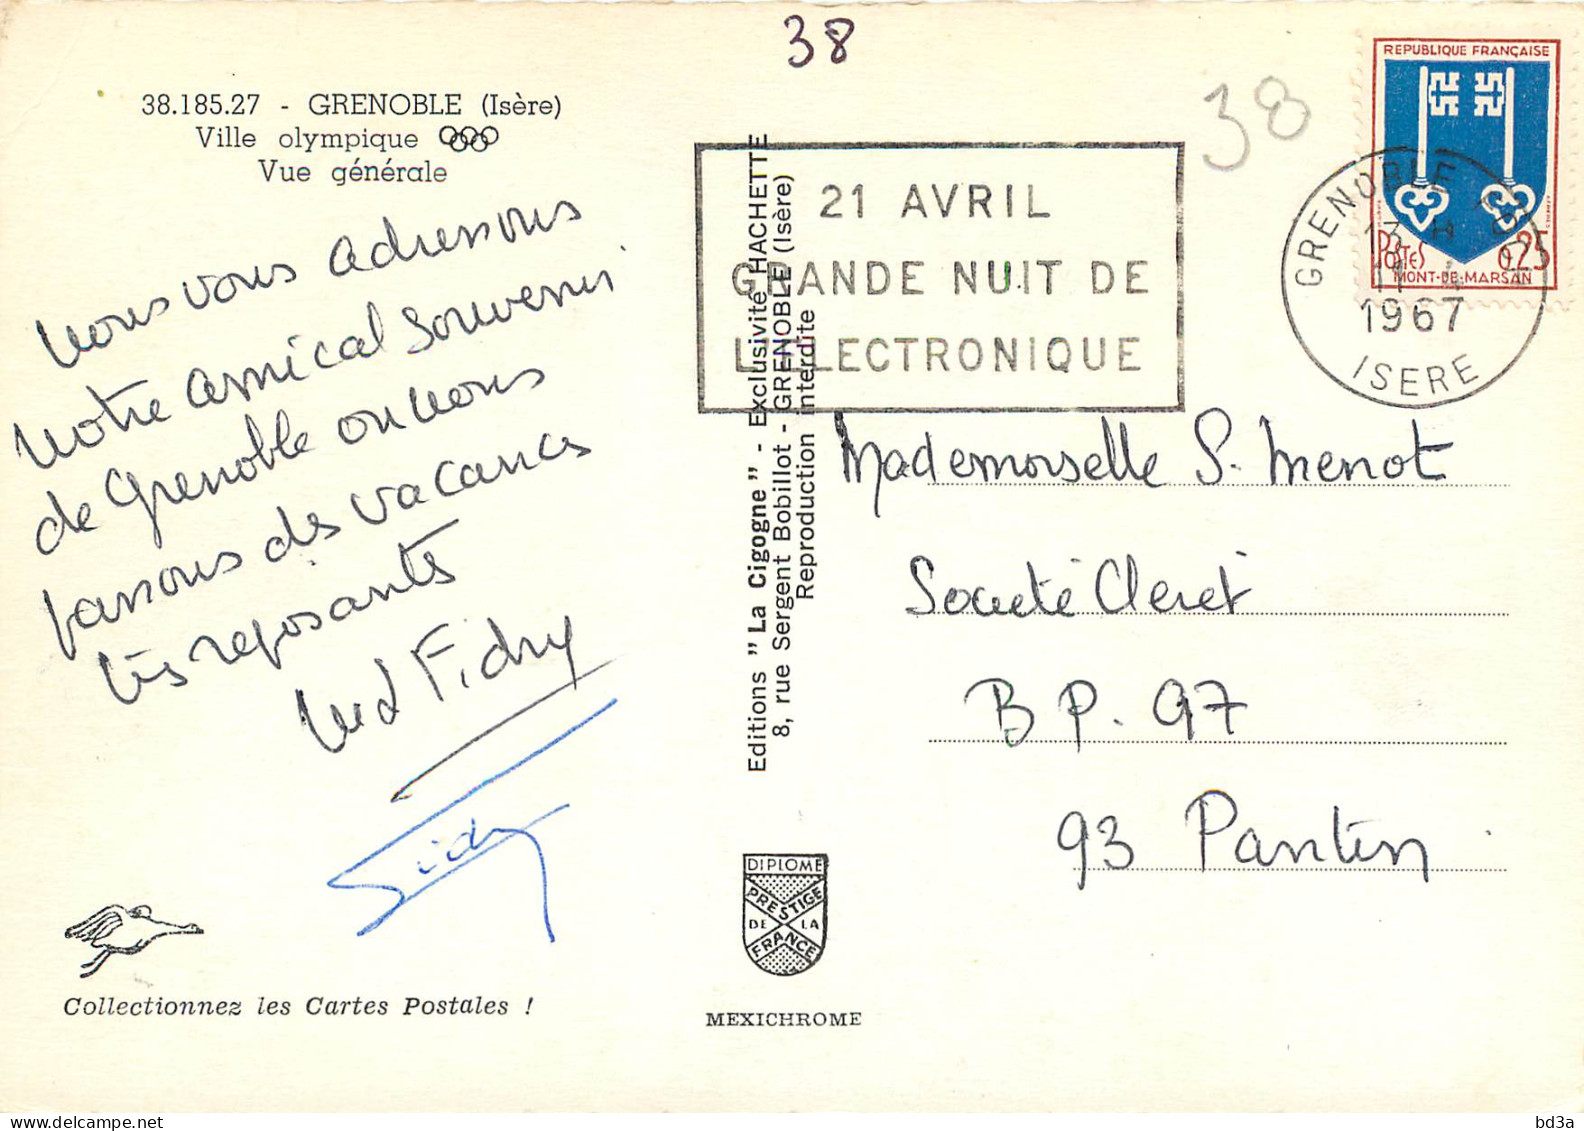 38
38
38.185.27 - GRENOBLE (Isère)
Ville olympique
Vue générale
Nous vous adressons
notre amical souvenir
de Grenoble où nous
passons des vacances
très reposantes
Collectionnez les Cartes Postales !
Editions " La Cigogne " - Exclusivité HACHETTE
8, rue Sergent Bobillot - GRENOBLE (Isère)
Reproduction interdite
DIPLOME
PRESTIGE
DE LA
FRANCE
MEXICHROME
21 AVRIL
GRANDE NUIT DE
L'ELECTRONIQUE
REPUBLIQUE FRANÇAISE
POSTES
0,25
MONT-DE-MARSAN
GRENOBLE
13 H
1967
ISERE
Mademoiselle S. Menot
Société Cleret
B P. 97
93 Pantin
bd3a